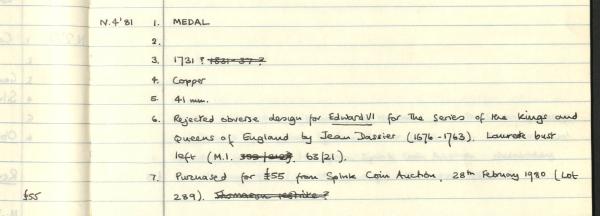 N.4'81 1. MEDAL
2.
3. 1731 ? 1831-37 ?
4. Copper
5. 41 mm.
6. Rejected obverse design for Edward VI for The series of the Kings and
Queens of England by Jean Dassier (1676-1763). Laureate bust
left (M.I. 63/21).
7. Purchased for £55 from Spink Coin Auction, 28th February 1980 (Lot
£55 289). Thomason restrike ?